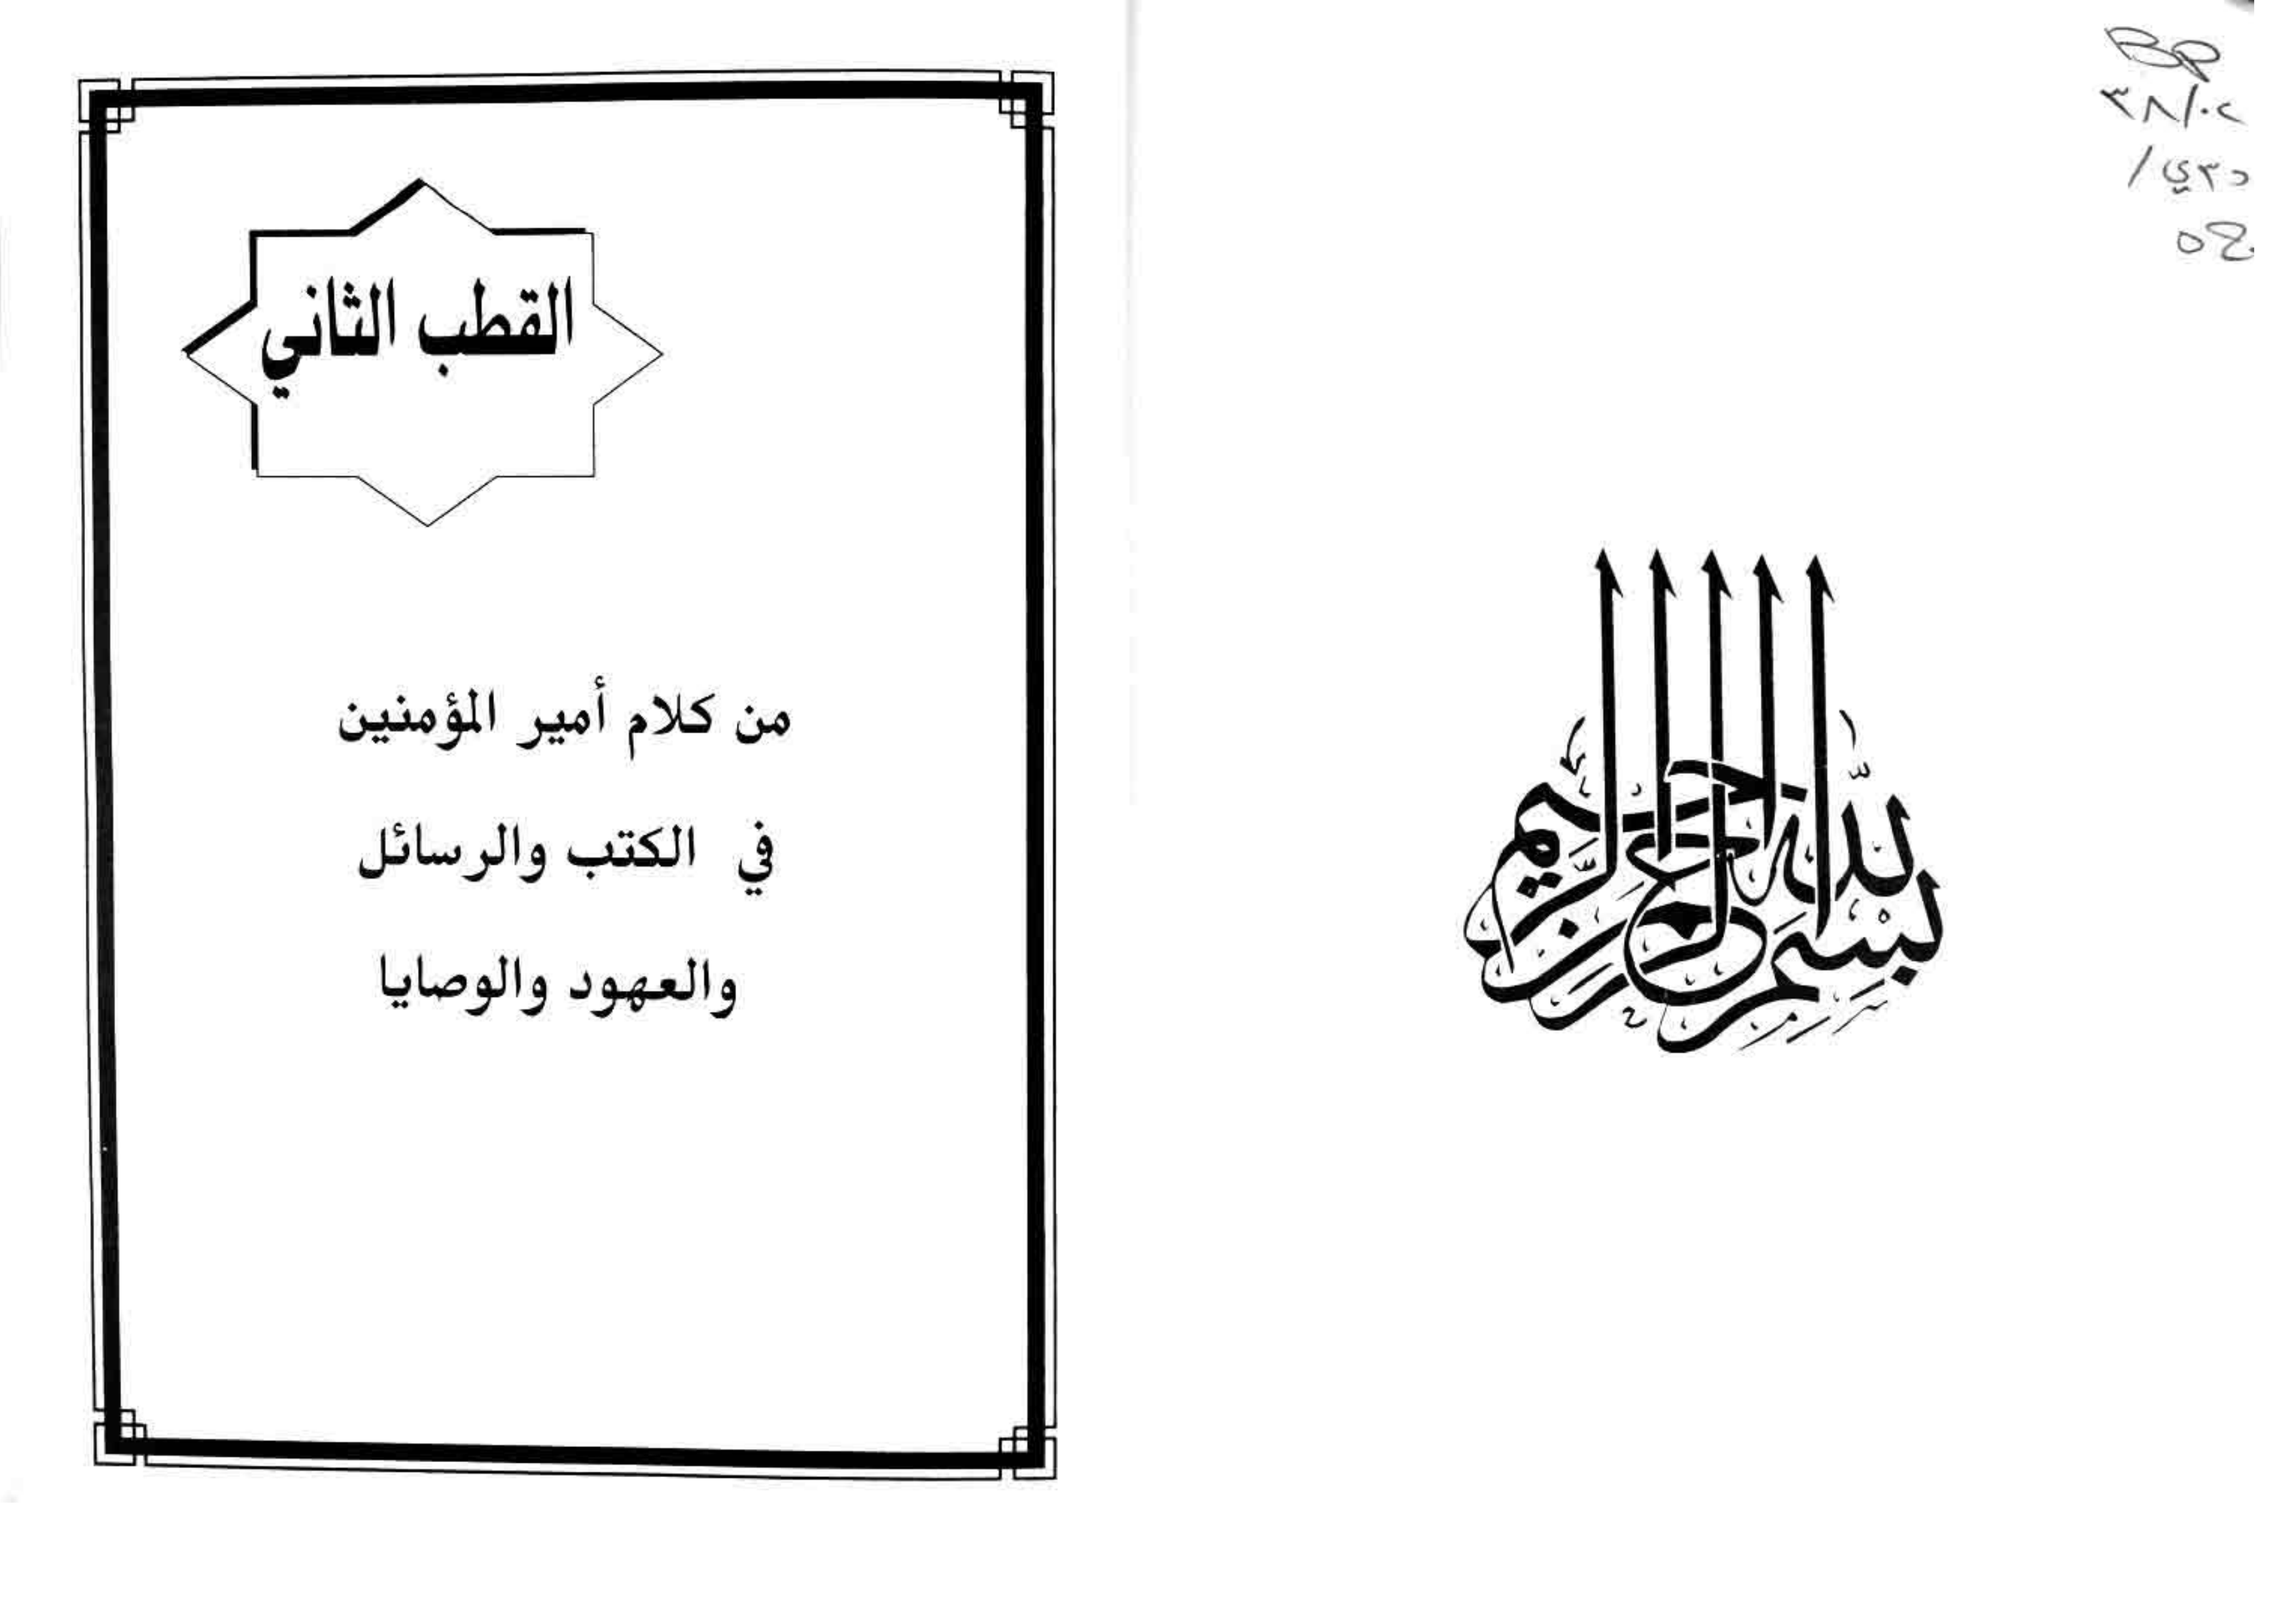 BP
٣٨/٠٢
/د٣ي
بسم الله الرحمن الرحيم
القطب الثاني
من كلام أمير المؤمنين
في الكتب والرسائل
والعهود والوصايا